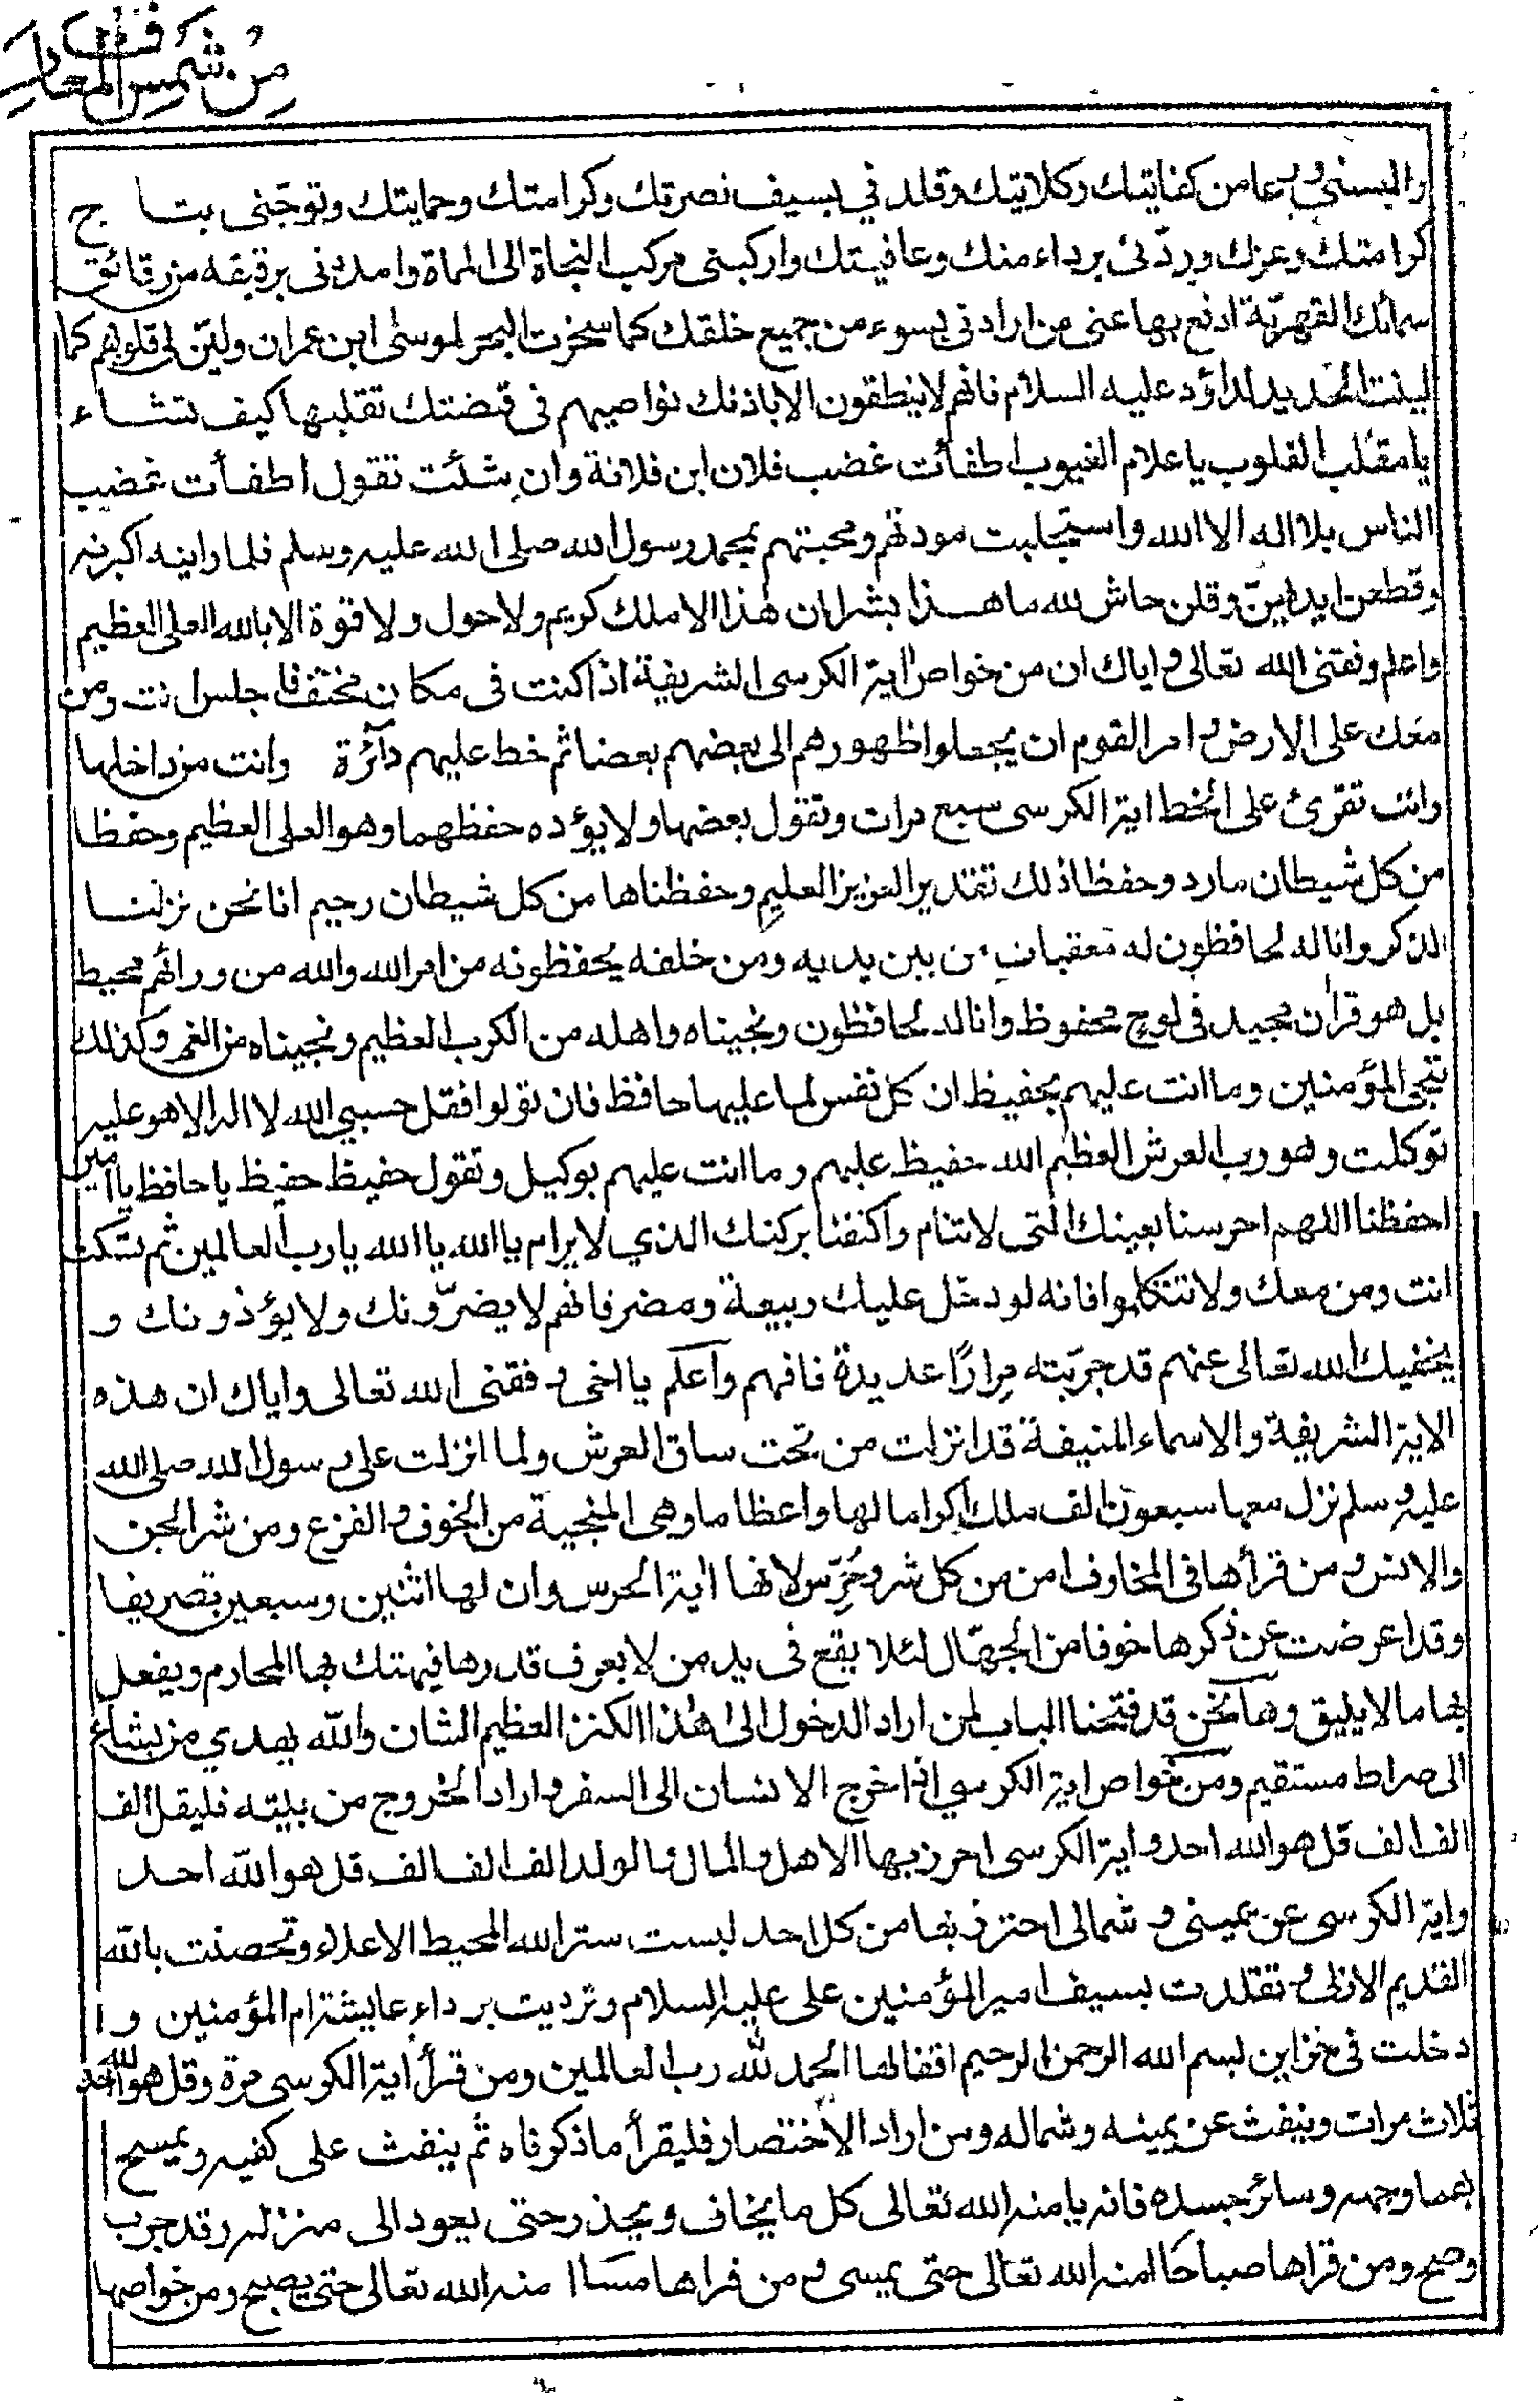 من شمس المعارف
والبسني درعا من كفايتك وكلاتيك وقلدني بسيف نصرتك وكرامتك وحمايتك وتوجنى بتاج
كرامتك وعزك وردّنى برداء منك وعافيتك واركبنى مركب النجاة الى المماة وامددنى برقيقه من رقائق
سمائك القهريّة ادفع بها عنى من ارادنى بسوء من جميع خلقك كما سخرت البحر لموسى ابن عمران وليّن لى قلوبهم كما
لينت الحديد لداؤد عليه السلام فانهم لا ينطقون الا باذنك نواصيهم فى قبضتك تقلبها كيف تشاء
يا مقلب القلوب يا علام الغيوب اطفأت غضب فلان ابن فلانة وان شئت تقول اطفأت غضب
الناس بلا اله الا الله واستجلبت مودتهم ومحبتهم بمحمد رسول الله صلى الله عليه وسلم فلما راينه اكبرنه
وقطعن ايديهنّ وقلن حاش لله ما هذا بشرا ان هذا الا ملك كريم ولا حول ولا قوة الا بالله العلى العظيم
واعلم وفقنى الله تعالى واياك ان من خواص اية الكرسى الشريفة اذا كنت فى مكان مختفا جلس انت ومن
معك على الارض وامر القوم ان يجعلوا ظهورهم الى بعضهم بعضا ثم خط عليهم دآئرة وانت من داخلها
وانت تقرئ على الخط اية الكرسى سبع مرات وتقول بعضها ولا يؤده حفظهما وهو العلى العظيم وحفظا
من كل شيطان مارد وحفظا ذلك تقدير العزيز العليم وحفظناها من كل شيطان رجيم انا نحن نزلنا
الذكر وانا له لحافظون له معقبات من بين يديه ومن خلفه يحفظونه من امر الله والله من ورائهم محيط
بل هو قران مجيد فى لوح محفوظ وانا له لحافظون ونجيناه واهله من الكرب العظيم ونجيناه من الغم وكذلك
ننجى المؤمنين وما انت عليهم بحفيظ ان كل نفس لما عليها حافظ فان تولوا فقل حسبي الله لا اله الا هو عليه
توكلت وهو رب العرش العظيم الله حفيظ عليهم وما انت عليهم بوكيل وتقول حفيظ حفيظ يا حافظ يا امين
احفظنا اللهم احرسنا بعينك التى لا تنام واكنفنا بركنك الذي لا يرام يا الله يا الله يا رب العالمين ثم تسكت
انت ومن معك ولا تتكلموا فانه لو دخل عليك ربيعة ومضر فانهم لا يضرّونك ولا يؤذونك و
يخفيك الله تعالى عنهم قد جربته مرارًا عديدة فافهم وآعلم يا اخى وفقنى الله تعالى واياك ان هذه
الاية الشريفة والاسماء المنيفة قد انزلت من تحت ساق العرش ولما انزلت على رسول الله صلى الله
عليه وسلم نزل معها سبعون الف ملك اكراما لها واعظاما وهى المنجية من الخوف والفزع ومن شر الجن
والانس ومن قرأها فى المخاوف امن من كل شر وحُرِّس لانها اية الحرس وان لها اثنين وسبعين تصريفا
وقد اعرضت عن ذكرها خوفا من الجهّال لئلا يقع فى يد من لا يعرف قدرها فيهتك بها المحارم ويفعل
بها ما لا يليق وها نحن قد فتحنا الباب لمن اراد الدخول الى هذا الكنز العظيم الشان والله يهدي من يشاء
الى صراط مستقيم ومن خواص اية الكرسي اذا خرج الانسان الى السفر واراد الخروج من بيته فليقل الف
الف الف قل هو الله احد واية الكرسى احرز بها الاهل والمال والولد الف الف الف قل هو الله احد
واية الكرسى عن يمينى وشمالى احترز بها من كل احد لبست ستر الله المحيط الاعلاء وتحصنت بالله
القديم الازلى وتقلدت بسيف امير المؤمنين على عليه السلام وترديت برداء عايشة ام المؤمنين و ا
دخلت فى خزاين بسم الله الرحمن الرحيم اقفالها الحمد لله رب العالمين ومن قرأ اية الكرسى مرة وقل هو الله احد
ثلاث مرات وينفث عن يمينه وشماله ومن اراد الاختصار فليقرأ ما ذكرناه ثم ينفث على كفيه ويمسح
بهما وجهه وسائر جسده فانه يامنه الله تعالى كل ما يخاف ويحذر حتى يعود الى منزله وقد جرب
وصح ومن قراها صباحًا امنه الله تعالى حتى يمسى ومن قراها مساا منه الله تعالى حتى يصبح ومن خواصها